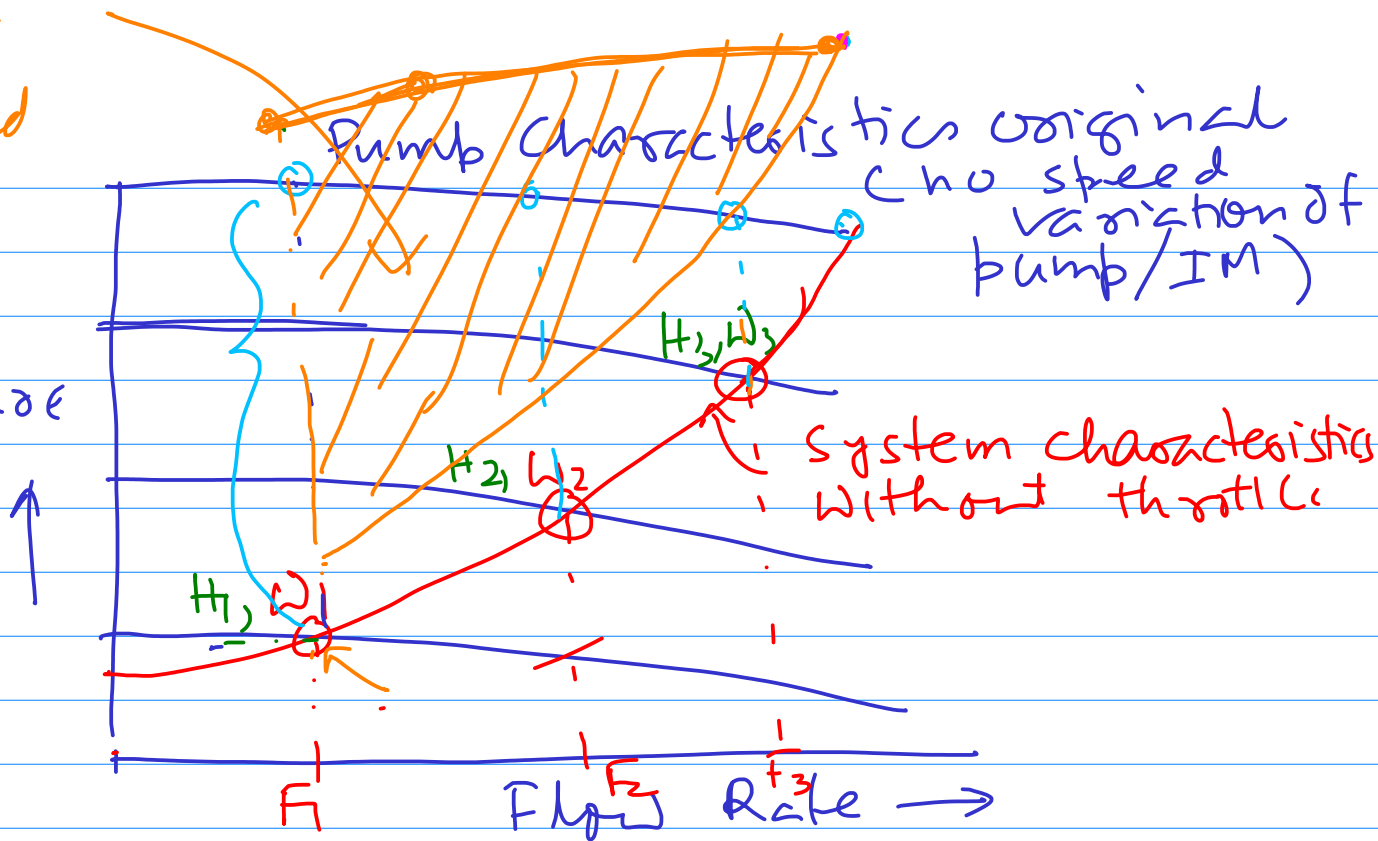 d
Pump Characteristics original
( no speed
variation of
pump/IM )
H3, W3
System characteristics
without throttle
H2, W2
H1, W
F1
F2
F3
Flow Rate →